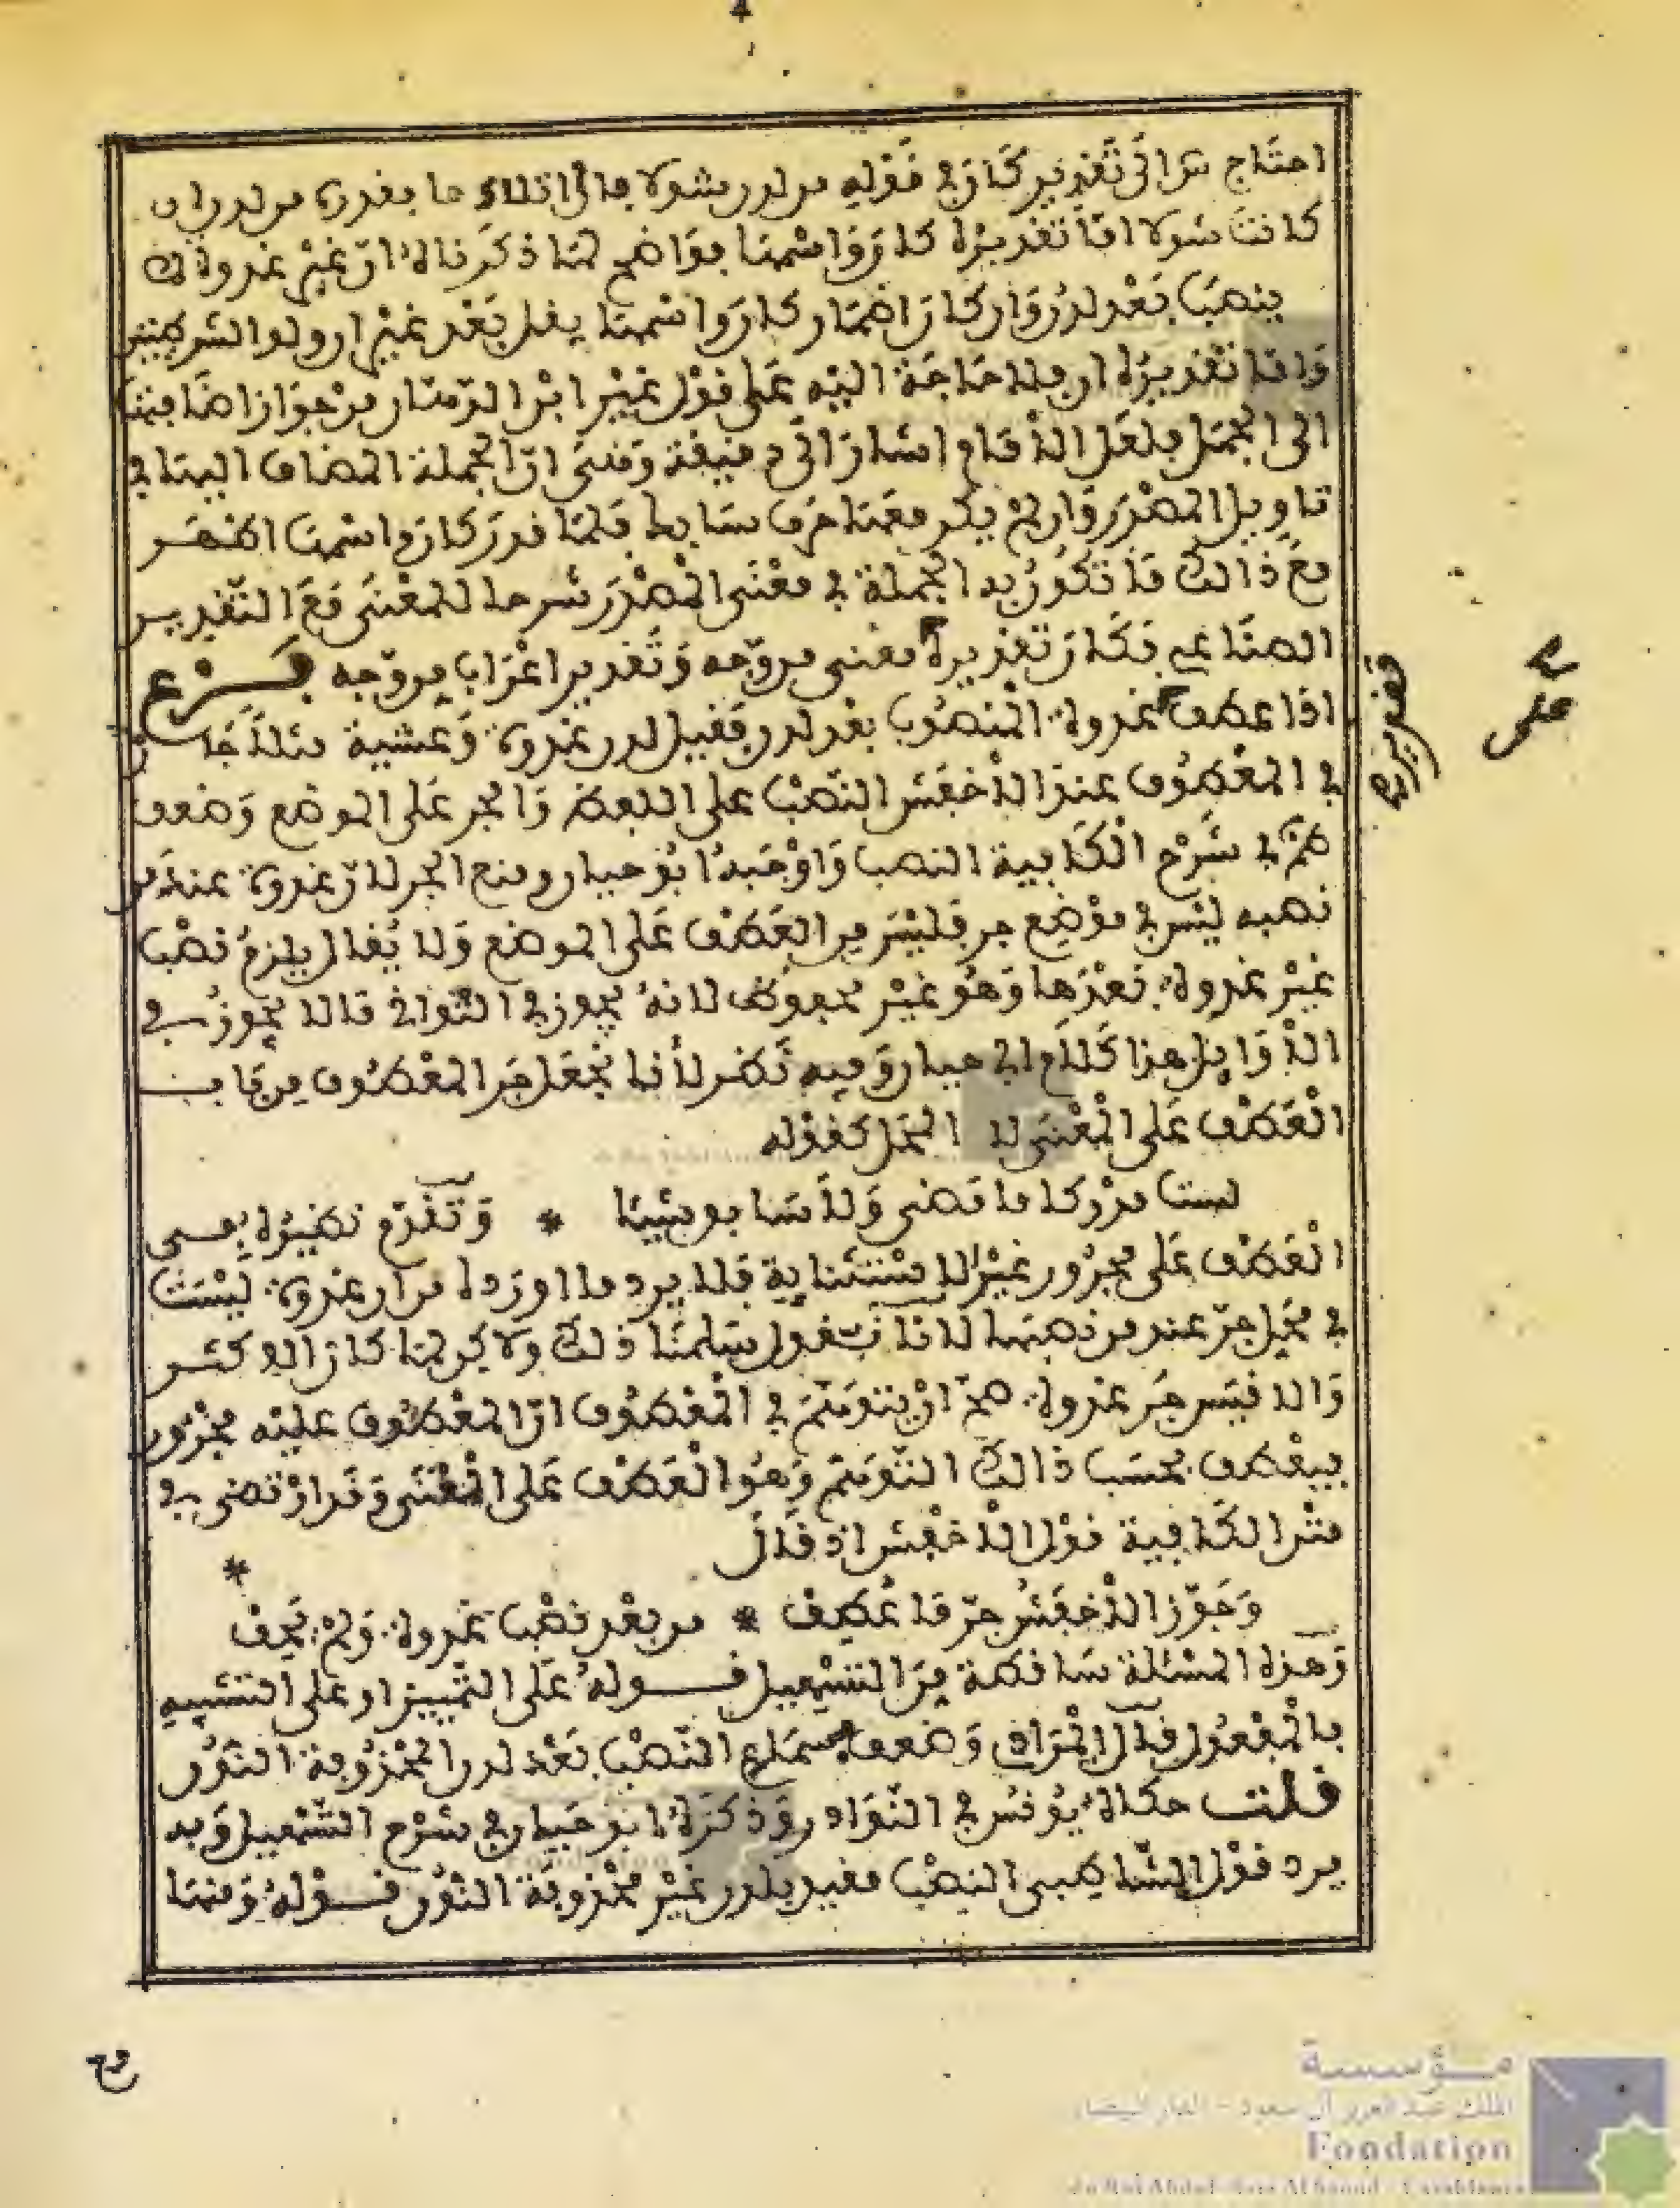 4
احتاج س الى تقدير كان في قوله من لدن شولا فالى اتلائها يقدره من لدن ان
كانت شولا اما تقديره كان واسمها فواضح لما ذكرناه ان غير غدوة لا
ينصب بعد لدن وان كان اضمار كان واسمها يقل بعد غير ان ولو الشرطيتين
واما تقديره ان فلا حاجة اليه على قول غير ابن الدهان من جواز اضافتها
الى الجمل فلعل الامام اشار الى دقيقة وهي ان الجملة المضاف اليها في
تاويل المصدر وان لم يكن معها حرف سابك فلما قدر كان واسمها اظهر
مع ذالك ما تكون به الجملة في معنى المصدر شرحا للمعنى مع التقدير
الصناعي فكان تقديره معنى من وجه وتقدير اعراب من وجه فرع
اذا عطف غدوة المنصوب بعد لدن فقيل لدن غدوة وعشية مثلا جاز
في المعطوف عند الاخفش النصب على اللفظ والجر على الموضع وضعف
ظم في شرح الكافية النصب واوجبه ابو حيان ومنع الجر لان غدوة عند من
نصبه ليس في موضع جر فليس من العطف على الموضع ولا يقال يلزم نصب
غير غدوة بعدها وهو غير محفوظ لانه يجوز في الثواني ما لا يجوز في
الاوايل هذا كلام ابي حيان وفيه نظر لانا نجعل جر المعطوف من باب
العطف على المعنى لا المحل كقوله
لست مدركا ما مضى ولا سابق شيئا * وتقدم نظيره في
العطف على مجرور غير الاستثناية فلا يرد ما اورده من ان غدوة ليست
في محل جر عند من نصبها لانا نقول سلمنا ذلك ولاكن لما كان الاكثر
والاقيس جر غدوة صح ان يتوهم في المعطوف ان المعطوف عليه مجرور
فيعطف بحسب ذالك التوهم وهو العطف على المعنى وقد ارتضى في
متن الكافية قول الاخفش اذ قال
*
وجوز الاخفش جر ما عطف * من بعد نصب غدوة ولم يحف
وهذه المسئلة ساقطة من التسهيل قوله على التمييز او على التشبيه
بالمفعول قال المرادي وضعف سماع النصب بعد لدن المحذوفة النون
قلت حكاه يونس في النوادر وذكره ابو حيان في شرح التسهيل وبه
يرد قول الشاطبي النصب مقيد بلدن غير محذوفة النون قوله ومنها
على
مؤسسة
الملك عبد العزيز آل سعود - الدار البيضاء
Fondation
du Roi Abdul-Aziz Al Saoud - Casablanca